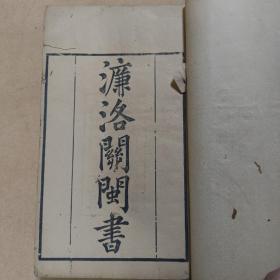 濂洛關閩書